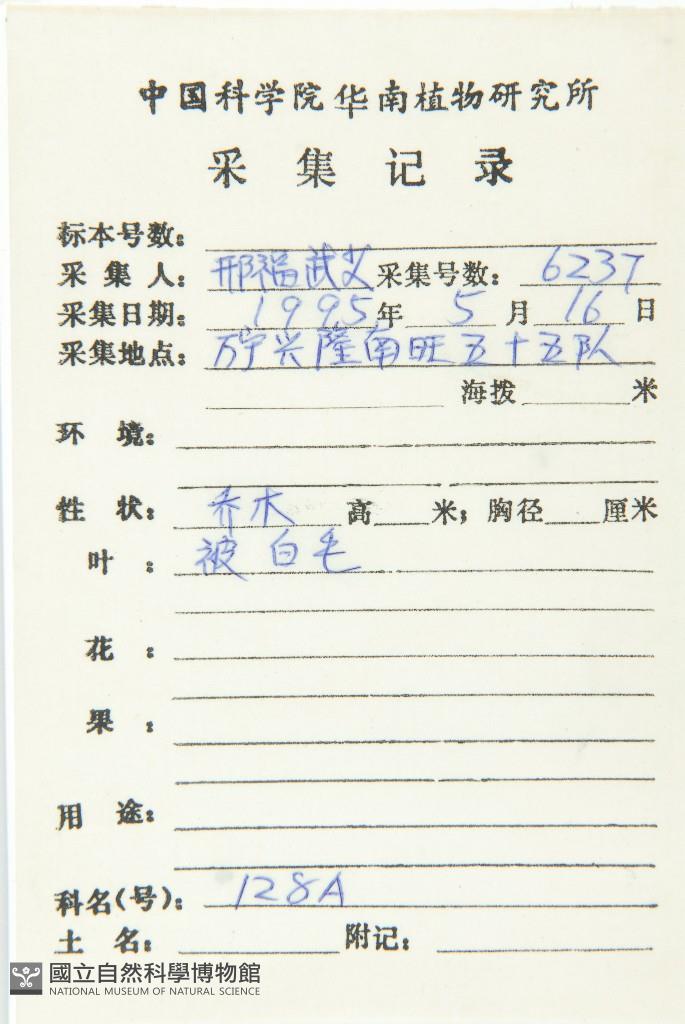 中国科学院华南植物研究所
采集记录
标本号数:
采集人: 邢福武 采集号数: 6237
采集日期: 1995年5月16日
采集地点: 万宁兴隆南旺五十五队
海拨 米
环境:
性状: 乔木 高 米; 胸径 厘米
叶: 被白毛
花:
果:
用途:
科名(号): 128A
土名: 附记:
國立自然科學博物館
NATIONAL MUSEUM OF NATURAL SCIENCE